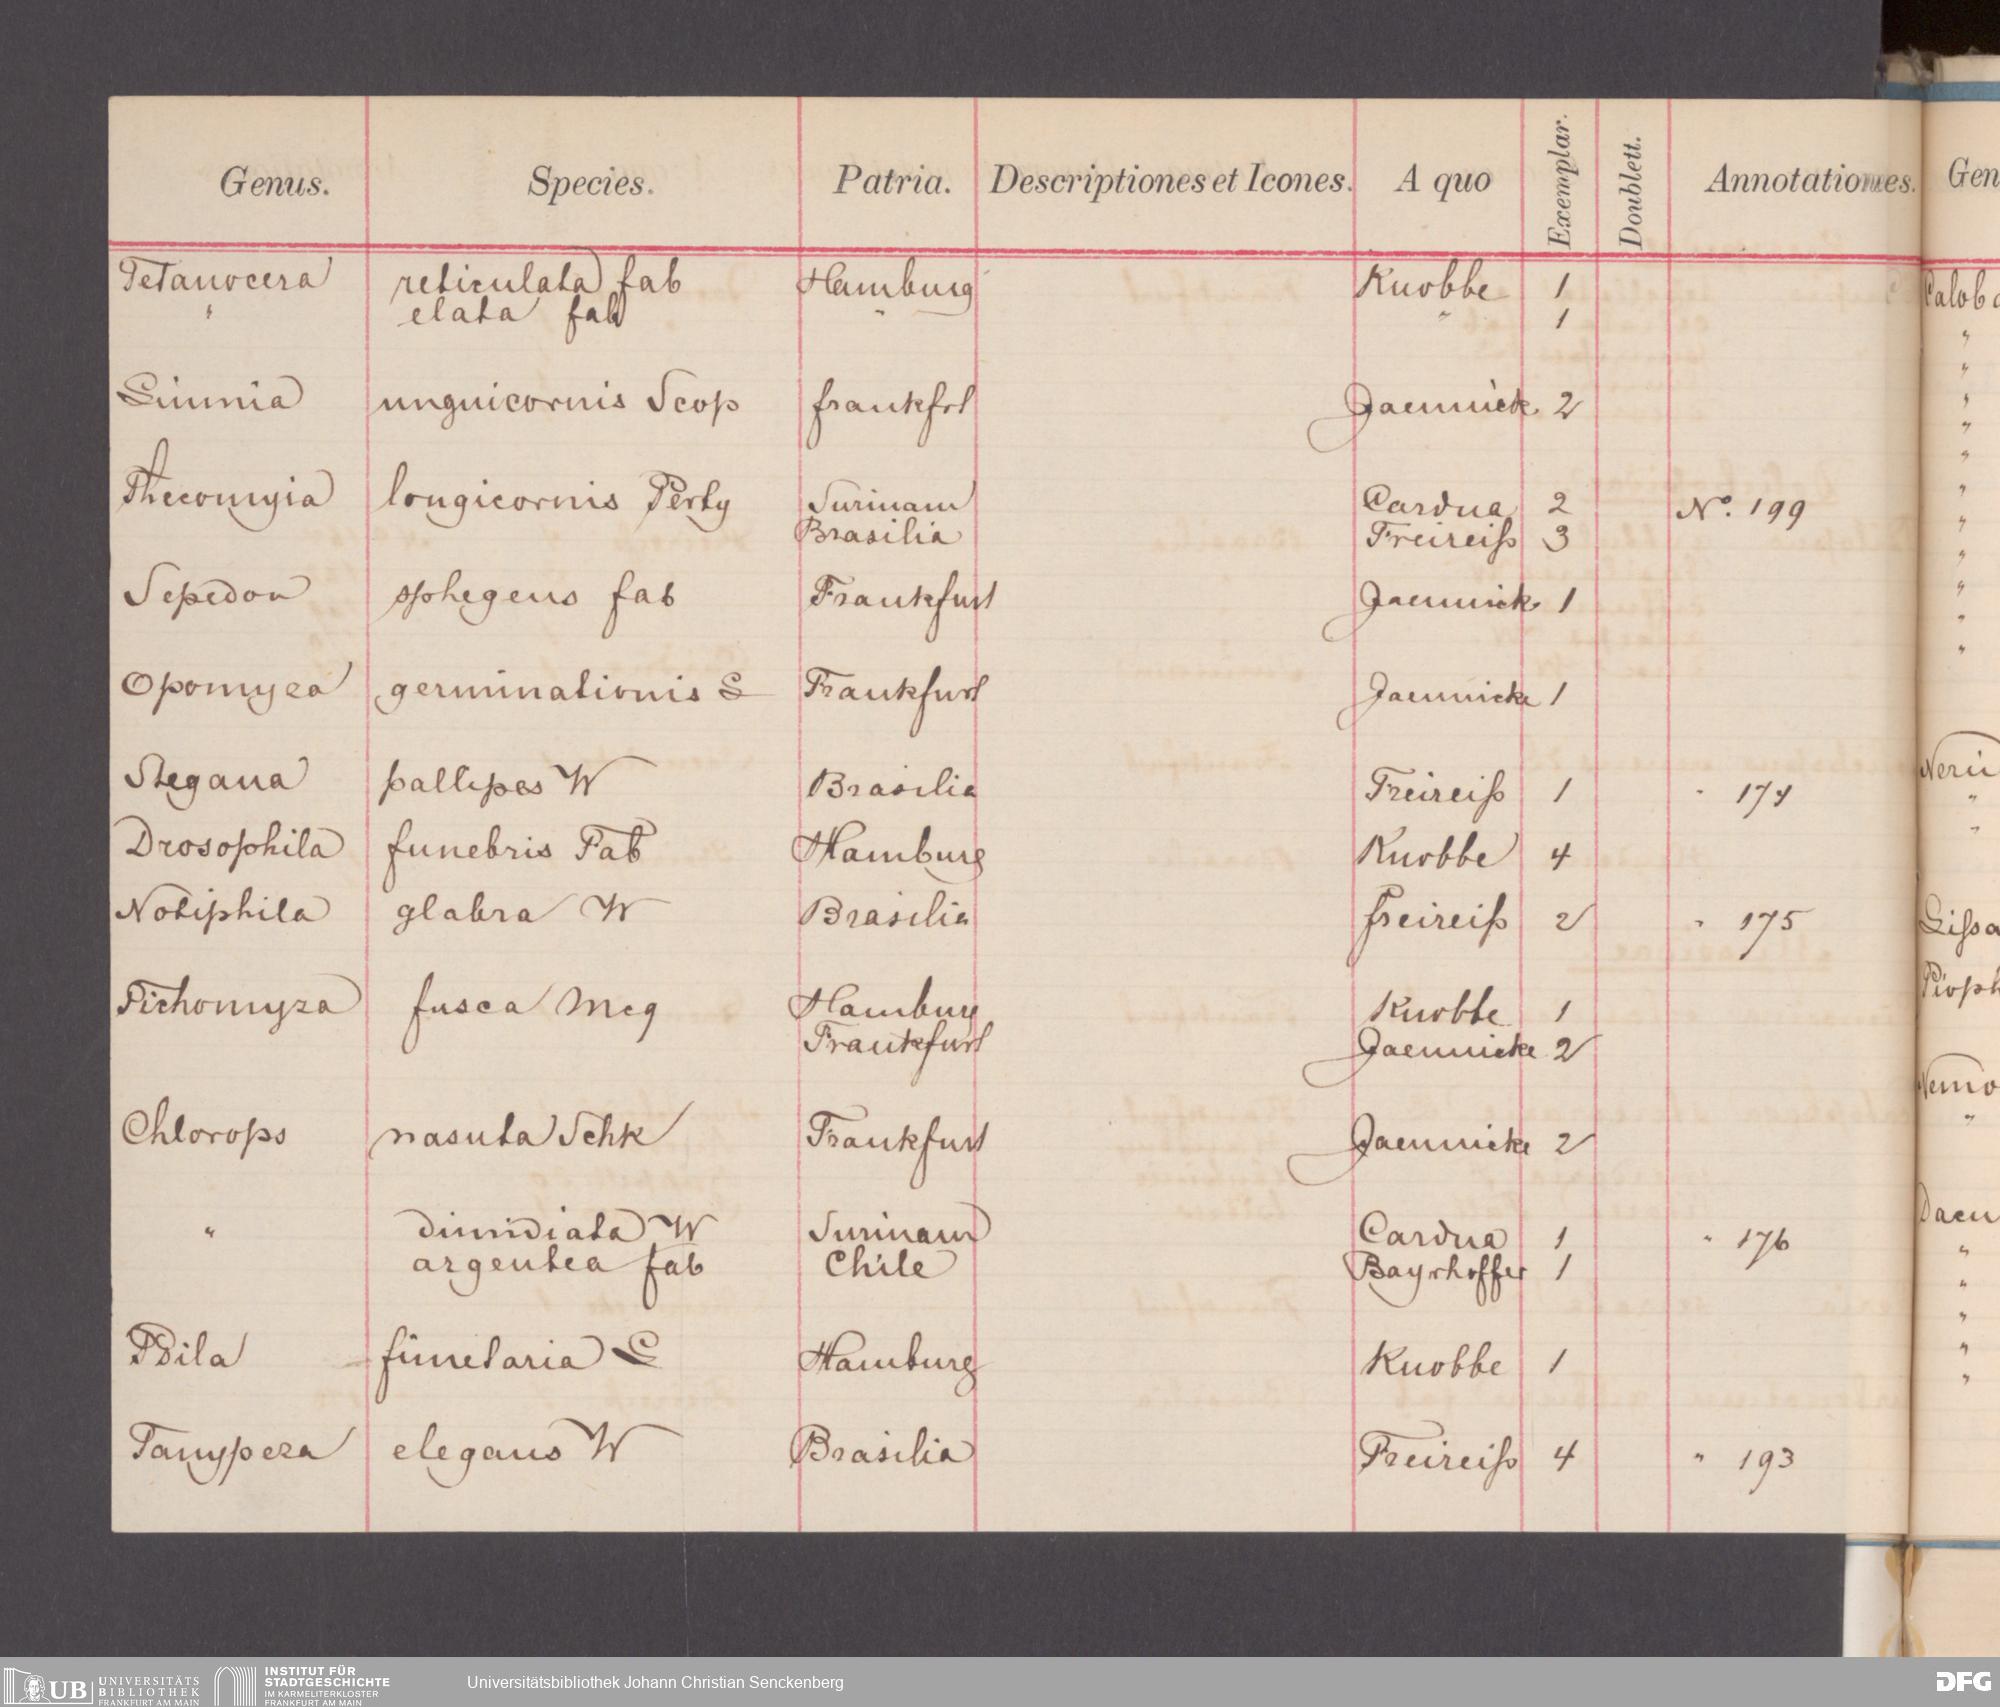 Genus. Species. Patria. Descriptiones et Icones. A quo Exemplar. Doublett. Annotationes. Gen
Tetanocera reticulata fab Hamburg Knobbe 1
" elata fab " " 1
Limnia unguicornis Scop frankfrt Jaennicke 2
Thecomyia longicornis Perty Surinam Cardua 2 No. 199
Brasilia Freireiß 3
Sepedon sphegeus fab Frankfurt Jaennicke 1
Opomyza germinationis L Frankfurt Jaennicke 1
Stegana pallipes W Brasilia Freireiß 1 " 174
Drosophila funebris Fab Hamburg Knobbe 4
Notiphila glabra W Brasilia Freireiß 2 " 175
Pichomyza fusca Meg Hamburg Knobbe 1
Frankfurt Jaennicke 2
Chlorops nasuta Schk Frankfurt Jaennicke 2
" dimidiata W Surinam Cardua 1 " 176
argentea fab Chile Bayrhoffer 1
Psila fimetaria L Hamburg Knobbe 1
Tanypeza elegans W Brasilia Freireiß 4 " 193
Calob
Neri
Lissa
Pioph
Nemo
Dacu
UB UNIVERSITÄTS
BIBLIOTHEK
FRANKFURT AM MAIN
INSTITUT FÜR
STADTGESCHICHTE
IM KARMELITERKLOSTER
FRANKFURT AM MAIN
Universitätsbibliothek Johann Christian Senckenberg
DFG